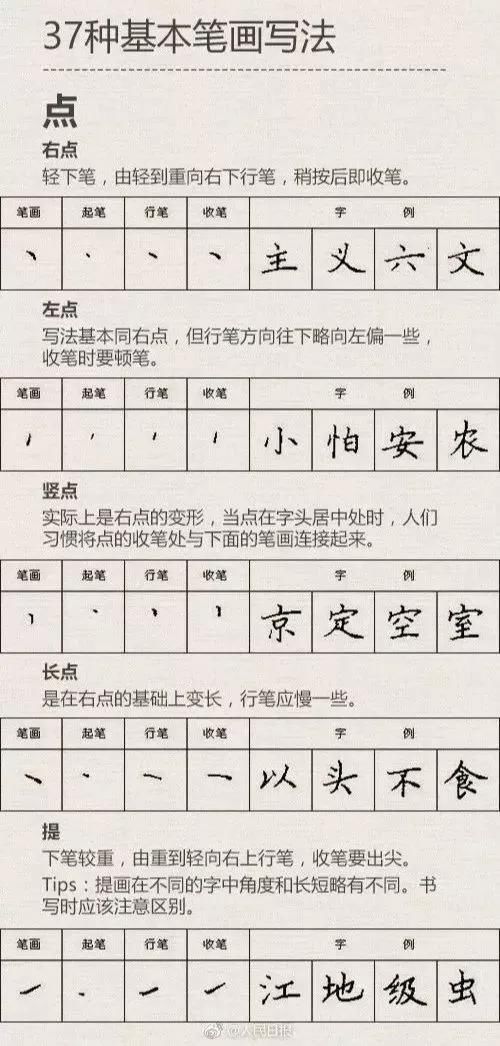 37种基本笔画写法
点
右点
轻下笔，由轻到重向右下行笔，稍按后即收笔。
笔画 起笔 行笔 收笔 字 例
丶 主 义 六 文
左点
写法基本同右点，但行笔方向往下略向左偏一些，
收笔时要顿笔。
笔画 起笔 行笔 收笔 字 例
小 怕 安 农
竖点
实际上是右点的变形，当点在字头居中处时，人们
习惯将点的收笔处与下面的笔画连接起来。
笔画 起笔 行笔 收笔 字 例
京 定 空 室
长点
是在右点的基础上变长，行笔应慢一些。
笔画 起笔 行笔 收笔 字 例
以 头 不 食
提
下笔较重，由重到轻向右上行笔，收笔要出尖。
Tips：提画在不同的字中角度和长短略有不同。书
写时应该注意区别。
笔画 起笔 行笔 收笔 字 例
江 地 级 虫
@人民日报